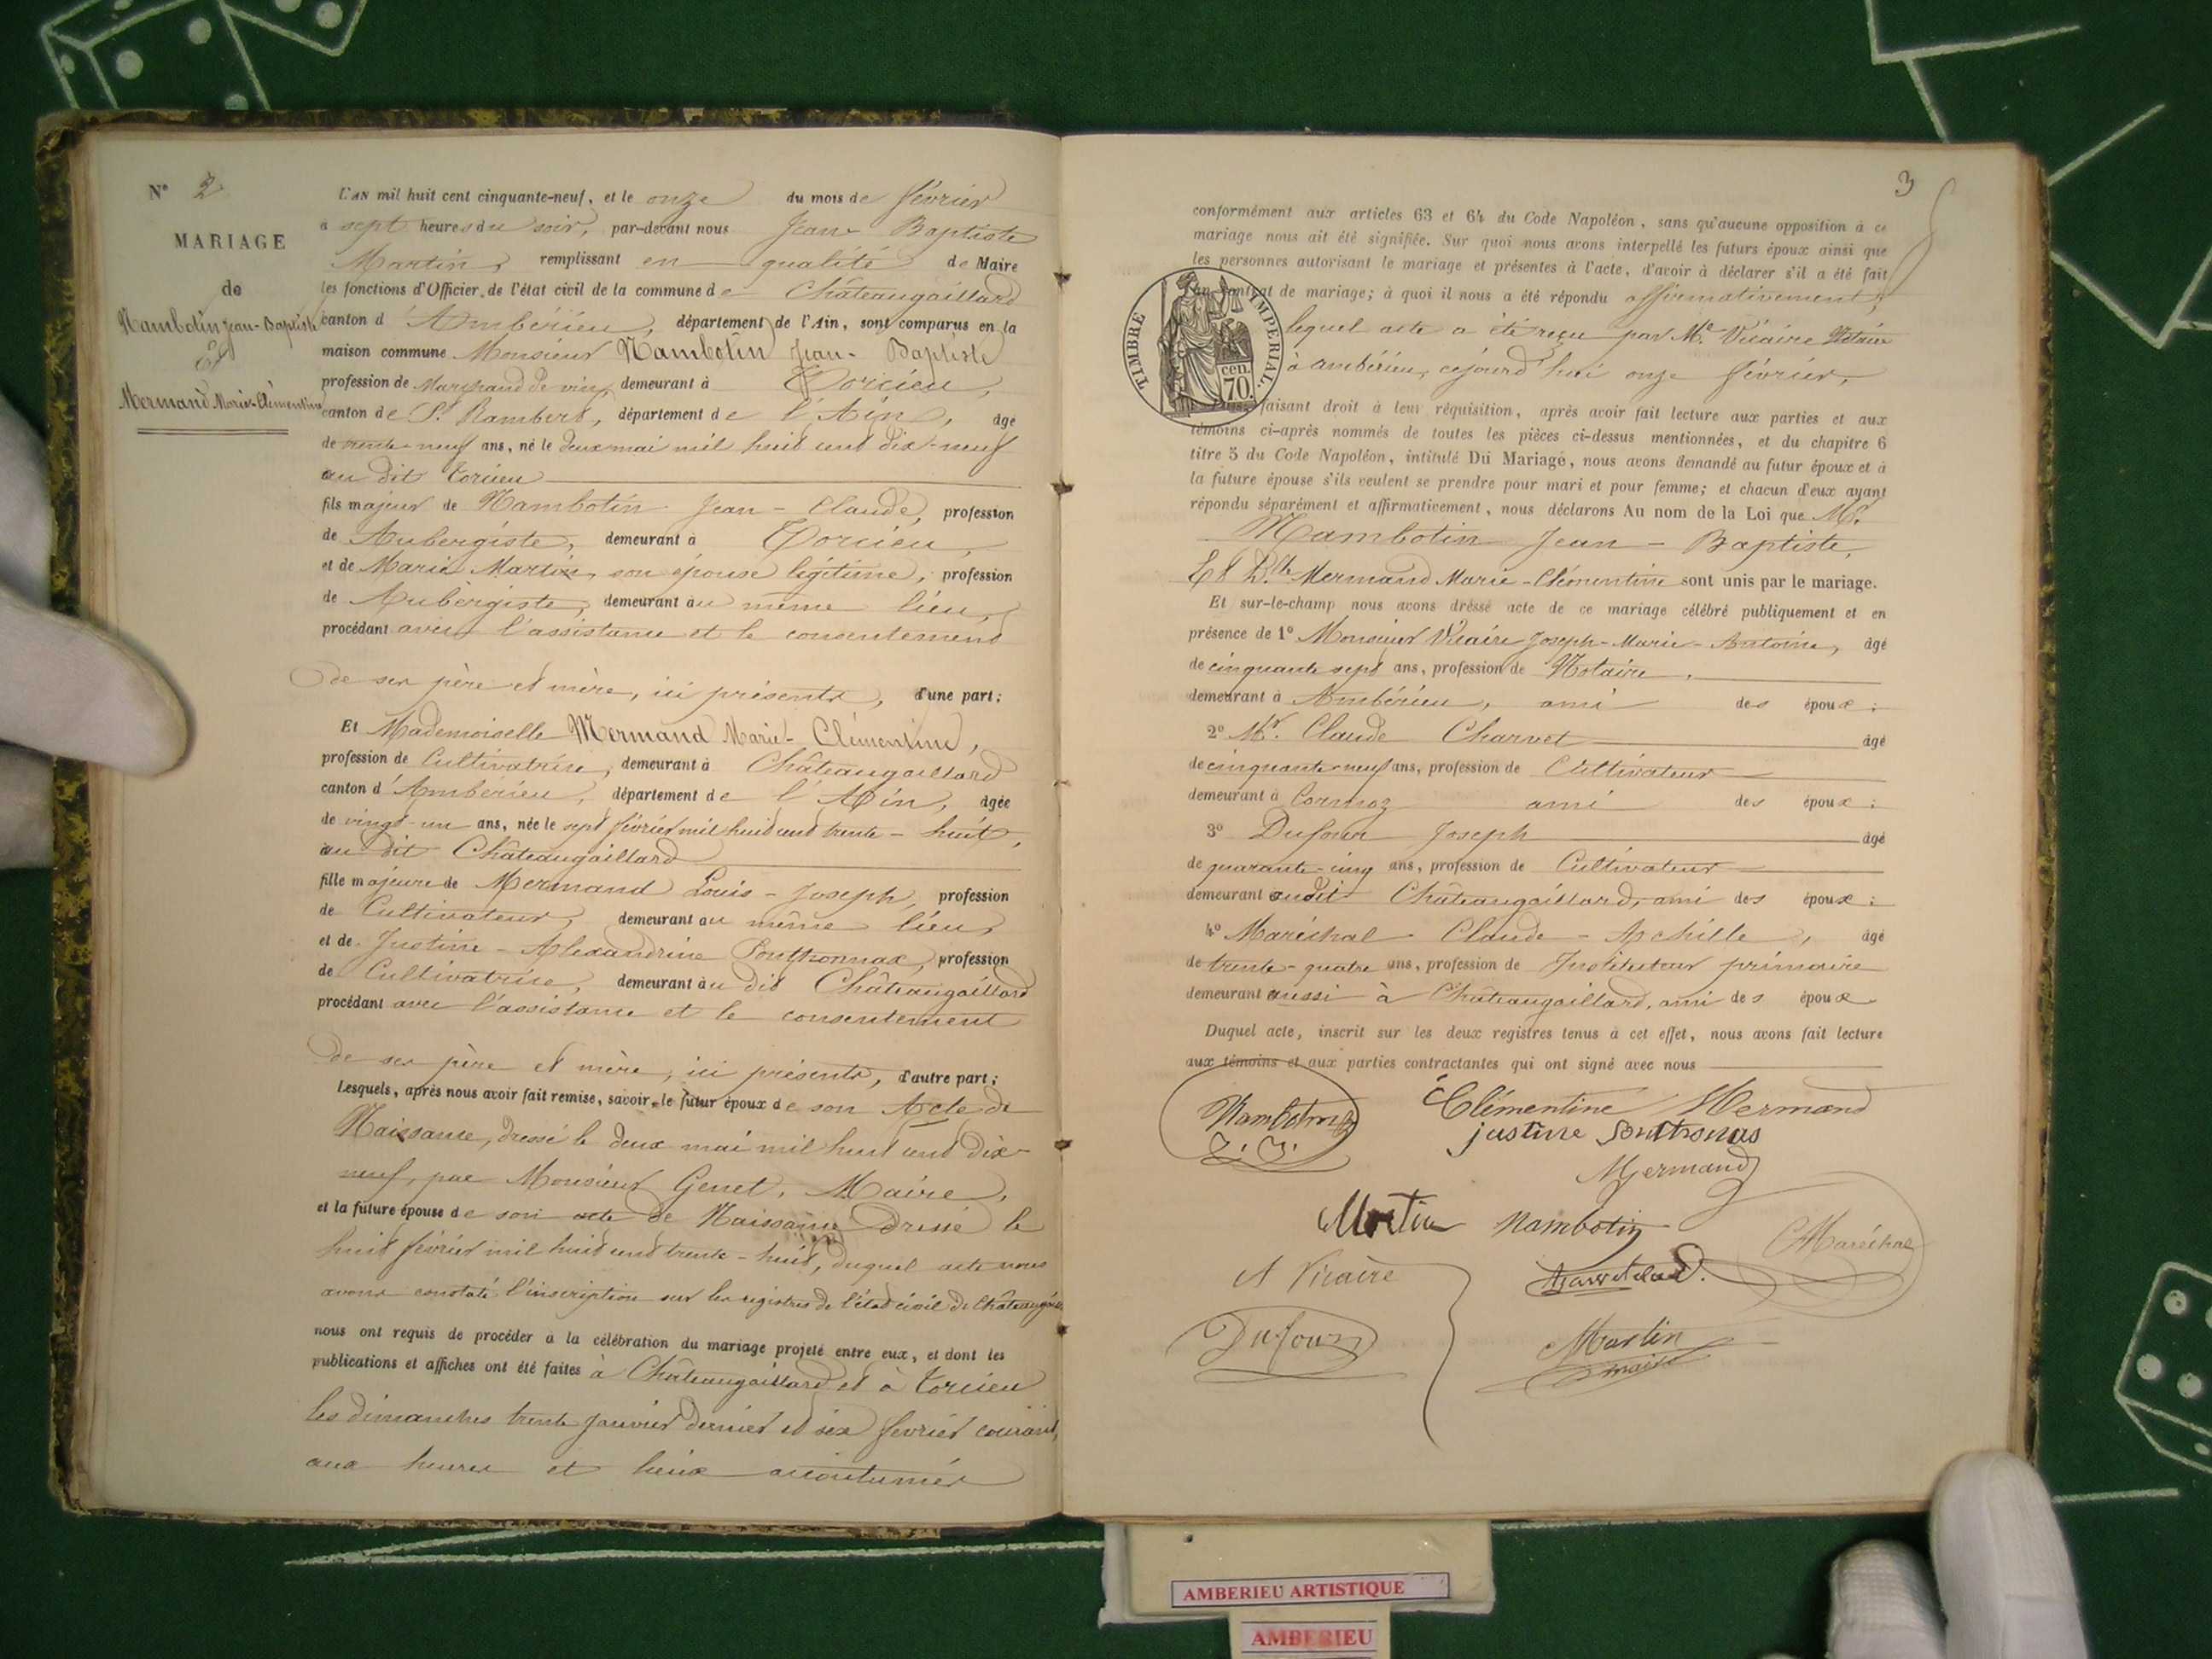 N° 2
MARIAGE
de
Nambotin Jean-Baptiste
Et
Mermand Marie-Clémentine
L'AN mil huit cent cinquante-neuf, et le onze du mois de février
à sept heures du soir, par-devant nous Jean Baptiste
Martin, remplissant en qualité de Maire
les fonctions d'Officier de l'état civil de la commune de Châteaugaillard
canton d'Ambérieu, département de l'Ain, sont comparus en la
maison commune Monsieur Nambotin Jean-Baptiste
profession de Marchand de vin, demeurant à Torcieu,
canton de St Rambert, département de l'Ain, âgé
de trente-neuf ans, né le deux mai mil huit cent dix-neuf
au dit Torcieu
fils majeur de Nambotin Jean-Claude, profession
de Aubergiste, demeurant à Torcieu,
et de Marie Martin, son épouse légitime, profession
de Aubergiste, demeurant au même lieu,
procédant avec l'assistance et le consentement
de ses père et mère, ici présents, d'une part;
Et Mademoiselle Mermand Marie-Clémentine,
profession de Cultivatrice, demeurant à Châteaugaillard
canton d'Ambérieu, département de l'Ain, âgée
de vingt-un ans, née le sept février mil huit cent trente-huit,
au dit Châteaugaillard
fille majeure de Mermand Louis-Joseph, profession
de Cultivateur, demeurant au même lieu,
et de Justine-Alexandrine Ponthonnax, profession
de Cultivatrice, demeurant au dit Châteaugaillard
procédant avec l'assistance et le consentement
de ses père et mère, ici présents, d'autre part;
Lesquels, après nous avoir fait remise, savoir, le futur époux de son Acte de
Naissance, dressé le deux mai mil huit cent dix-
neuf, par Monsieur Genet, Maire,
et la future épouse de son acte de Naissance dressé le
huit février mil huit cent trente-huit, duquel acte nous
avons constaté l'inscription sur les registres de l'état civil de
nous ont requis de procéder à la célébration du mariage projeté entre eux, et dont les
publications et affiches ont été faites à Châteaugaillard et à Torcieu
les dimanches trente janvier dernier et six février courant,
aux heures et lieux accoutumés
3
conformément aux articles 63 et 64 du Code Napoléon, sans qu'aucune opposition à ce
mariage nous ait été signifiée. Sur quoi nous avons interpellé les futurs époux ainsi que
les personnes autorisant le mariage et présentes à l'acte, d'avoir à déclarer s'il a été fait
un contrat de mariage; à quoi il nous a été répondu affirmativement,
lequel acte a été reçu par Me Vicaire Notaire
à ambérieu, cejourd'hui onze février,
TIMBRE IMPÉRIAL.
cen. 70.
faisant droit à leur réquisition, après avoir fait lecture aux parties et aux
témoins ci-après nommés de toutes les pièces ci-dessus mentionnées, et du chapitre 6
titre 5 du Code Napoléon, intitulé Du Mariage, nous avons demandé au futur époux et à
la future épouse s'ils veulent se prendre pour mari et pour femme; et chacun d'eux ayant
répondu séparément et affirmativement, nous déclarons Au nom de la Loi que Mr
Nambotin Jean-Baptiste,
Et Dlle Mermand Marie-Clémentine sont unis par le mariage.
Et sur-le-champ nous avons dressé acte de ce mariage célébré publiquement et en
présence de 1° Monsieur Vicaire Joseph-Marie-Antoine, âgé
de cinquante sept ans, profession de Notaire,
demeurant à Ambérieu, ami des époux;
2° Mr. Claude Charvet âgé
de cinquante-neuf ans, profession de Cultivateur
demeurant à Cormoz ami des époux;
3° Dufour Joseph âgé
de quarante-cinq ans, profession de Cultivateur
demeurant audit Châteaugaillard, ami des époux;
4° Maréchal Claude-Achille, âgé
de trente-quatre ans, profession de Instituteur primaire
demeurant aussi à Châteaugaillard, ami des époux
Duquel acte, inscrit sur les deux registres tenus à cet effet, nous avons fait lecture
aux témoins et aux parties contractantes qui ont signé avec nous
Nambotin Clémentine Mermand
J.B. justine
Mermand
Martin Nambotin
Maréchal
A Vicaire
Dufour Martin
maire
AMBERIEU ARTISTIQUE
AMBERIEU